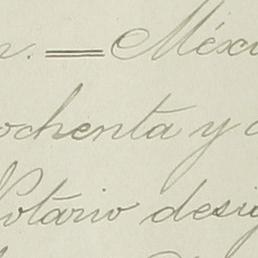 n. = Méxic
ochenta y c
Notario desig